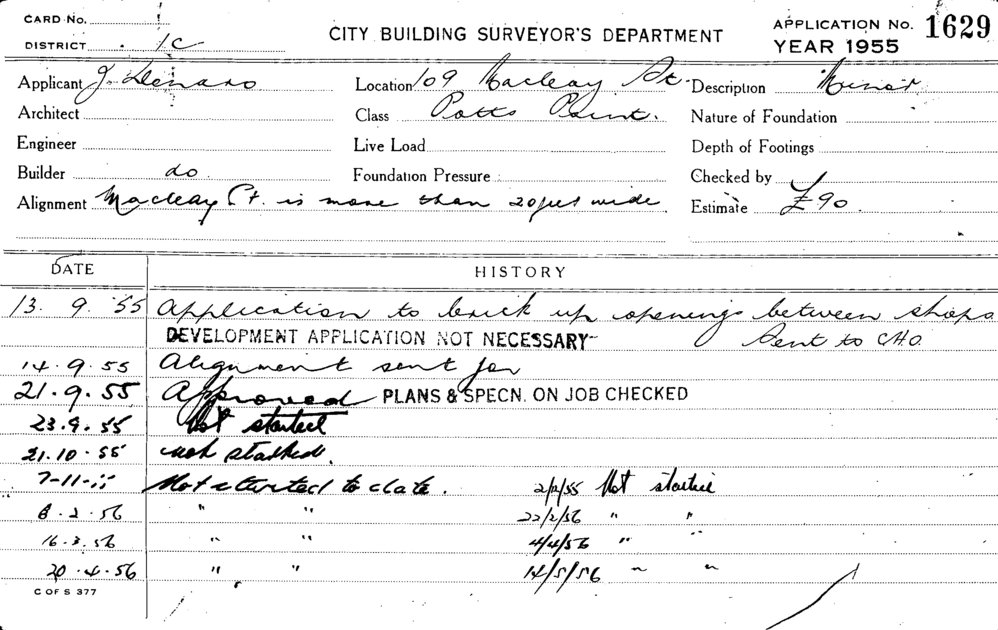 CARD No. 1
CITY BUILDING SURVEYOR'S DEPARTMENT
APPLICATION No. 1629
DISTRICT 1C
YEAR 1955
Applicant J. Denaro Location 109 Macleay St. Description Minor
Architect Class Potts Point. Nature of Foundation
Engineer Live Load Depth of Footings
Builder do Foundation Pressure Checked by
Alignment Macleay St. is more than 20 feet wide Estimate £90
DATE HISTORY
13. 9. 55 Application to brick up openings between shops
DEVELOPMENT APPLICATION NOT NECESSARY Sent to CHO.
14.9.55 Alignment sent for
21.9.55 Approved PLANS & SPECN. ON JOB CHECKED
23.9.55 Not started
21.10.55 not started.
7-11-55 Not started to date. 2/55 Not started
8.2.56 " " 22/2/56 " "
16.3.56 " " 4/4/56 " "
20.4.56 " " 14/5/56 " "
C OF S 377